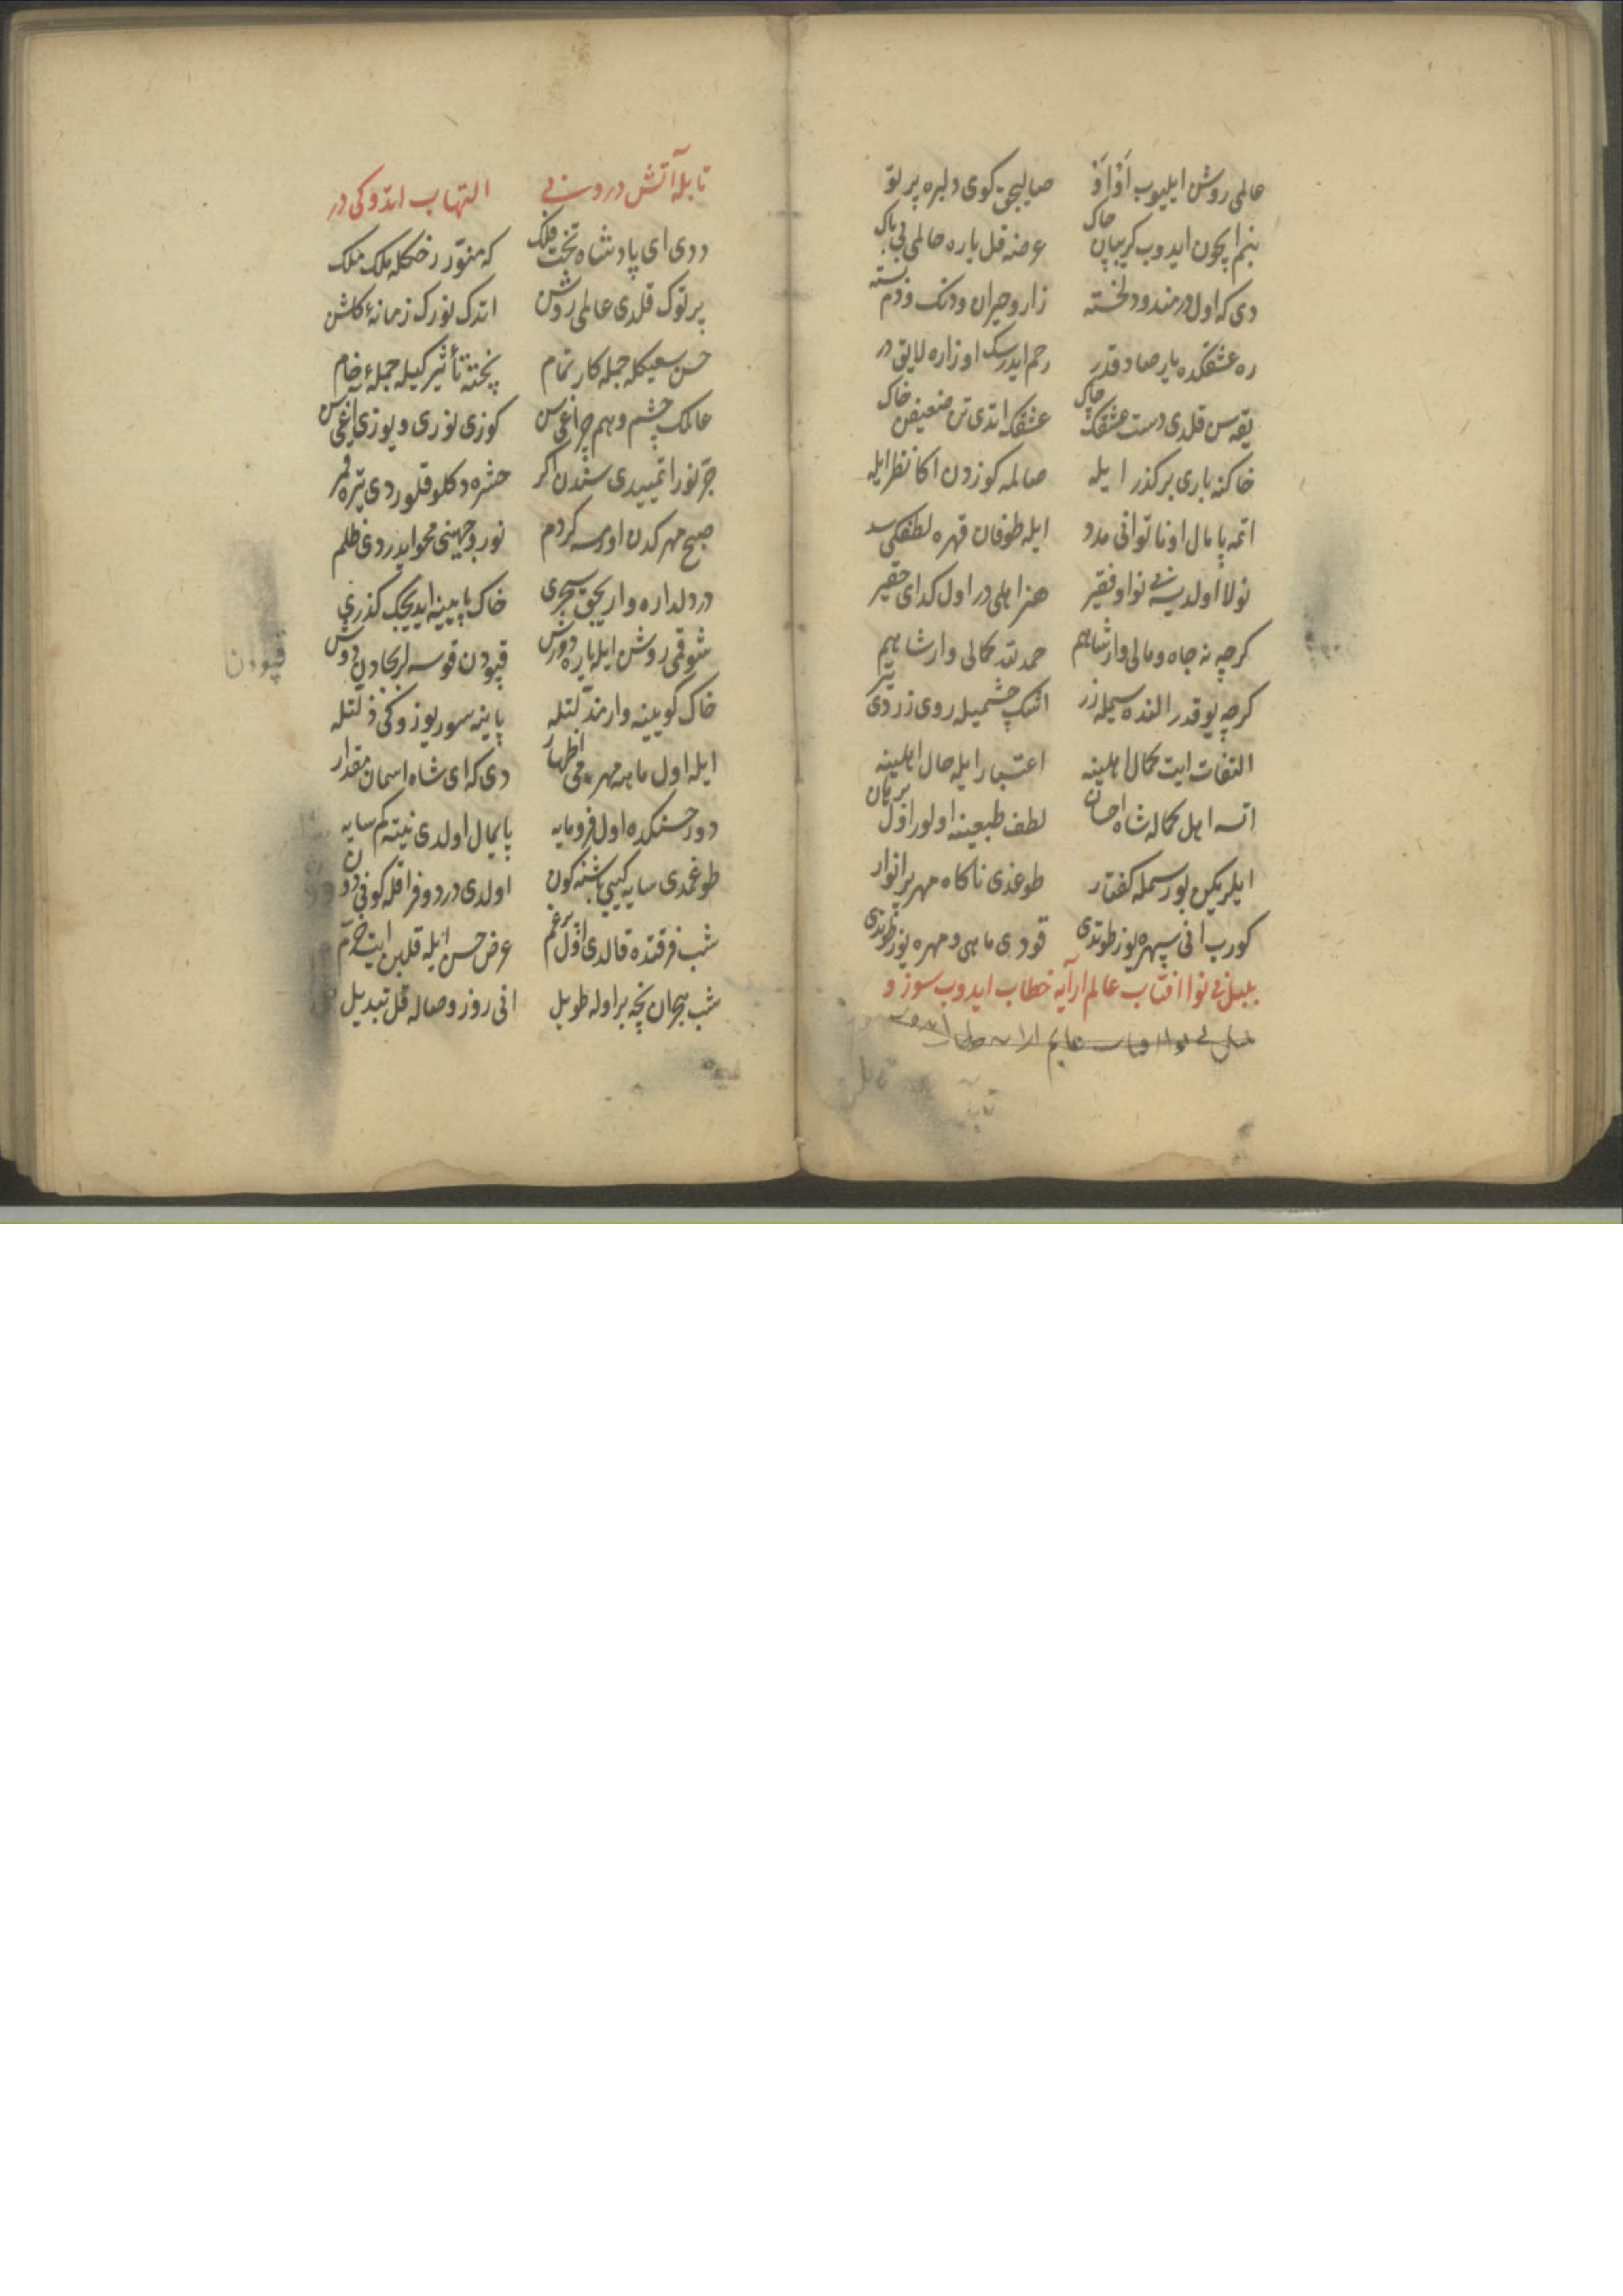 حالمی روشن ایلیوب اَوْ اَوْ صالیجق کوی دلبره پرتو
بنم ایچون ایدوب کریبان چاک عرضه قل یاره حالمی بی باک
دی که اول دردمند و دلخسته زار و حیران و دنک و دم بسته
ره عشقکده یار صادقدر رحم ایدرسک او زاره لایقدر
یقه سن قلدی دست عشقک چاک عشقک اتدی تن ضعیفن خاک
خاکنه باری بر کذر ایله صالمه کوزدن اکا نظر ایله
اتمه پامال او ناتوانی مدد ایله طوفان قهره لطفکی سد
نولا اولدیسه بی نوا و فقیر هنر اهلی در اول کدای حقیر
کرچه نه جاه و مالی وار شاهم حمد لله کمالی وار شاهم
کرچه یوقدر النده سیمله زر اشک چشمیله روی زردی یتر
التفات ایت کمال اهلینه اعتبار ایله حال اهلینه
اتسه اهل کماله شاه احسان لطف طبعینه اولور اول برهان
ایلریکن بو رسمله کفتار طوغدی ناکاه مهر پر انوار
کورب انی سپهره یوز طوتدی قودی ماهی و مهره یوز طوتدی
بلبل بی نوا افتاب عالم ارایه خطاب ایدوب سوز و
بلبل بی نوا افتاب عالم ارایه خطاب ایدوب
تابله آتش درونی التهاب اتدوکی در
ددی ای پادشاه تخت فلک که منوّر رخکله ملک ملک
پرتوک قلدی عالمی روشن اتدک نورک زمانهٔ کلشن
حسن سعیکله جمله کار تمام پخته تأثیرکیله جملهٔ خام
عالمک چشم و هم چراغی سن کوزی نوری و یوزی اغی سن
جرّ نور اتمییدی سندن اکر حشره دکلو قلوردی تیره قمر
صبح مهرکدن اورسه کر دم نور وجهینی محو ایدردی ظلم
در دلداره واریجق سحری خاک پایینه ایدیجک کذری
شوقمی روشن ایله یاره دورش قپودن قوسه لر بجادن دوش
خاک کویینه وار مذلتله پاینه سور یوزوکی ذلتله
ایله اول ماهه مهرمی اظهار دی که ای شاه اسمان مقدار
دور حسنکده اول فرومایه پایمال اولدی نیته کم سایه
طوغمدی سایه کبی باشنه کون اولدی درد و فراقله کونی دون
شب فرقتده قالدی اول پرغم عرض حسن ایله قلبن ایت خرّم
شب هجران نچه بر اوله طویل انی روز وصاله قل تبدیل
قپودن